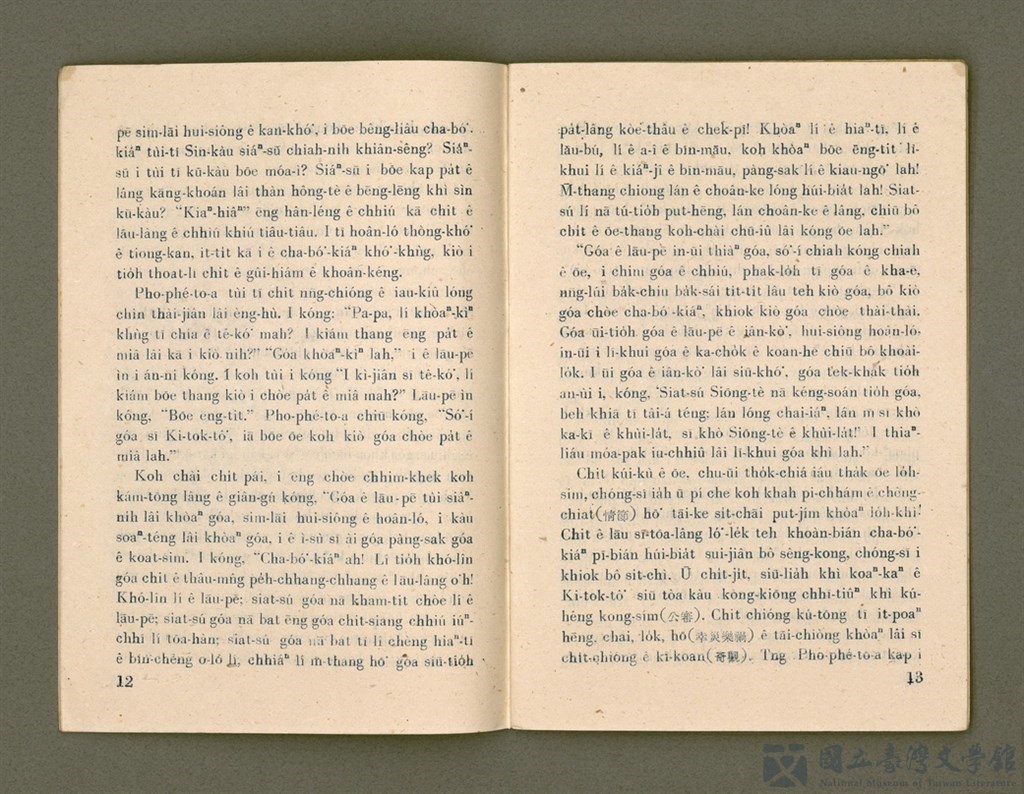 pē sim-lāi hui-siông ê kan-khó͘, i bōe bêng-liâu cha-bó͘-
kiáⁿ tùi-tī Sin-kàu siáⁿ-sū chiah-nih khiân-sêng? Siáⁿ-
sū i tùi tī kū-kàu bōe móa-ì? Siáⁿ-sū i bōe kap pa̍t ê
lâng kāng-khoán lâi thàn hông-tè ê bēng-lēng khì sìn
kū-kàu? “Kiaⁿ-hiâⁿ” ēng hân-léng ê chhiú kā chit ê
lāu-lâng ê chhiú khiú tiâu-tiâu. I tī hoân-ló thòng-khó͘
ê tiong-kan, it-tit kā i ê cha-bó͘-kiáⁿ khó͘-khǹg, kiò i
tio̍h thoat-lī chit ê gûi-hiám ê khoân-kéng.
Pho-phé-to-a tùi tī chit nn̄g-chióng ê iau-kiû lóng
chin thài-jiân lâi èng-hù. I kóng: “Pa-pa, lí khòaⁿ-kìⁿ
khǹg tī chia ê tê-kó͘ mah? I kiám thang ēng pa̍t ê
miâ lâi kā i kiò nih?” “Góa khòaⁿ-kìⁿ lah,” i ê lāu-pē
ìn i án-ni kóng. I koh tùi i kóng “I kì-jiân sī tê-kó͘, lí
kiám bōe thang kiò i chòe pa̍t ê miâ mah?” Lāu-pē ìn
kóng, “Bōe ēng-tit.” Pho-phé-to-a chiū kóng, “Só͘-í
góa sī Ki-tok-tô͘, iā bōe ōe koh kiò góa chòe pa̍t ê
miâ lah.”
Koh chài chi̍t pái, i ēng chòe chhim-khek koh
kám-tōng lâng ê giân-gú kóng, “Góa ê lāu-pē tùi siáⁿ-
nih lâi khòaⁿ góa, sim-lāi hui-siông ê hoân-ló, i kàu
soaⁿ-téng lâi khòaⁿ góa, i ê ì-sù sī ài góa pàng-sak góa
ê koat-sim. I kóng, “Cha-bó͘-kiáⁿ ah! Lí tio̍h khó-lîn
góa chit ê thâu-mn̂g pe̍h-chhang-chhang ê lāu-lâng o͘h!
Khó-lîn lí ê lāu-pē; siat-sú góa nā kham-tit chòe lí ê
lāu-pē; siat-sú góa nā bat ēng góa chit-siang chhiú iúⁿ-
chhī lí tōa-hàn; siat-sú góa nā bat tī lí chèng hiaⁿ-tī
ê bīn-chêng o-ló lí, chhiáⁿ lí m̄-thang hō͘ góa siū-tio̍h
12
pa̍t-lâng kòe-thâu ê chek-pī! Khòaⁿ lí ê hiaⁿ-tī, lí ê
lāu-bú, lí ê a-î ê bīn-māu, koh khòaⁿ bōe ēng-tit lī-
khui lí ê kiáⁿ-jî ê bīn-māu, pàng-sak lí ê kiau-ngō͘ lah!
M̄-thang chiong lán ê choân-ke lóng húi-bia̍t lah! Siat-
sú lí nā tú-tio̍h put-hēng, lán choân-ke ê lâng, chiū bô
chi̍t ê ōe-thang koh-chài chū-iû lâi kóng ōe lah.”
“Góa ê lāu-pē in-ūi thiàⁿ góa, só͘-í chiah kóng chiah
ê ōe, i chim góa ê chhiú, phak-lo̍h tī góa ê kha-ê,
nn̄g-lúi ba̍k-chiu ba̍k-sái ti̍t-ti̍t lâu teh kiò góa, bô kiò
góa chòe cha-bó͘-kiáⁿ, khiok kiò góa chòe thài-thài.
Góa ūi-tio̍h góa ê lāu-pē ê iân-kò͘, hui-siông hoân-ló-
in-ūi i lī-khui góa ê ka-cho̍k ê koan-hē chiū bô khoài-
lo̍k. I ūi góa ê iân-kò͘ lâi siū-khó͘, góa tek-khak tio̍h
an-ùi i, kóng, ‘Siat-sú Siōng-tè nā kéng-soán tio̍h góa,
beh khiā tī tâi-á téng; lán lóng chai-iáⁿ, lán m̄ sī khò
ka-kī ê khùi-la̍t, sī khò Siōng-tè ê khùi-la̍t!’ I thiaⁿ-
liáu móa-pak iu-chhiû lâi lī-khui góa khì lah.”
Chit kúi-kù ê ōe, chu-ūi tho̍k-chiá iáu tha̍k ōe lo̍h-
sim, chóng-sī ia̍h ū pí che koh khah pi-chhám ê chêng-
chiat(情節) hō͘ tāi-ke si̍t-chāi put-jím khòaⁿ lo̍h-khì!
Chit ê lāu sī-tōa-lâng ló͘-le̍k teh khoàn-bián cha-bó͘-
kiáⁿ pī-bián húi-bia̍t sui-jiân bô sêng-kong, chóng-sī i
khiok bô sit-chì. Ū chi̍t-ji̍t, siū-lia̍h khì koaⁿ-kaⁿ ê
Ki-tok-tô͘ siū tòa kàu kòng-kióng chhī-tiûⁿ khì kú-
hêng kong-sím(公審). Chit chióng kú-tōng tī it-poaⁿ
hēng, chai, lo̍k, hō(幸災樂禍) ê tāi-chiòng khòaⁿ lâi sī
chi̍t-chióng ê kî-koan(奇觀). Tng Pho-phé-to-a kap i
13
國立臺灣文學館
National Museum of Taiwan Literature